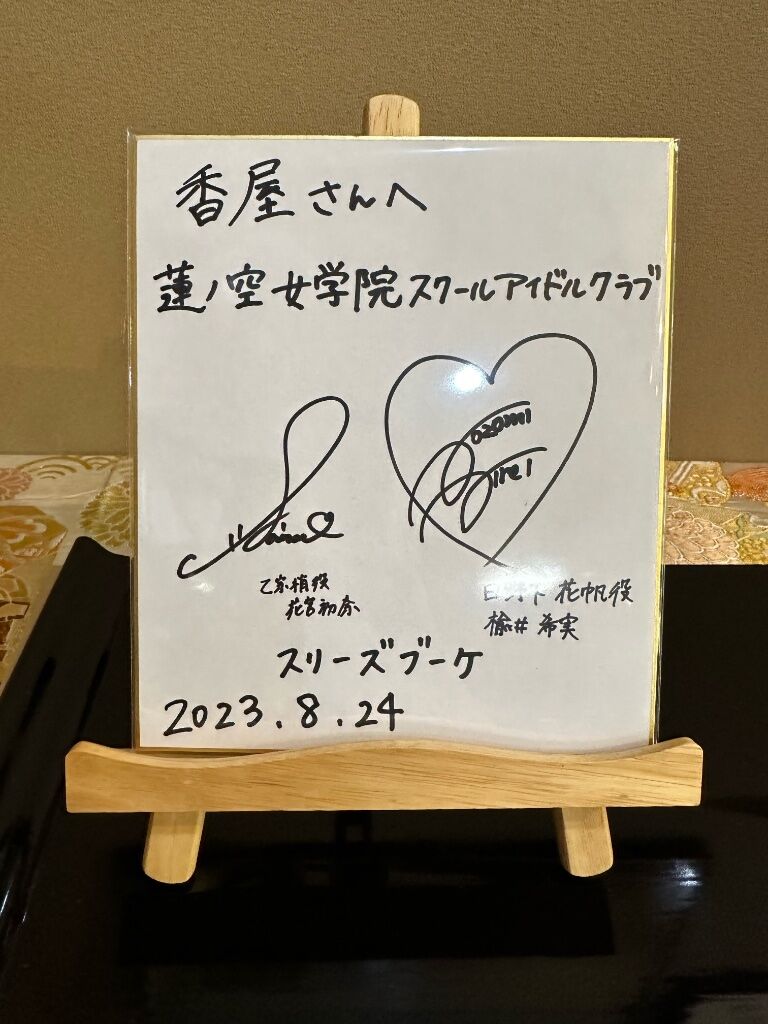 香屋さんへ
蓮ノ空女学院スクールアイドルクラブ
Nozomi
Nirei
乙宗梢役
花宮初奈
日野下花帆役
楡井希実
スリーズブーケ
2023.8.24